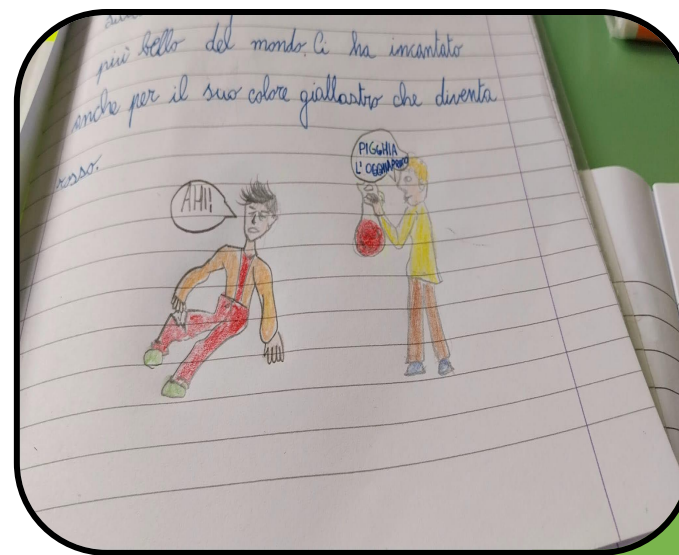 più bello del mondo. Ci ha incantato
anche per il suo colore giallastro che diventa
rosso.
AHI!
PIGGHIA
L'